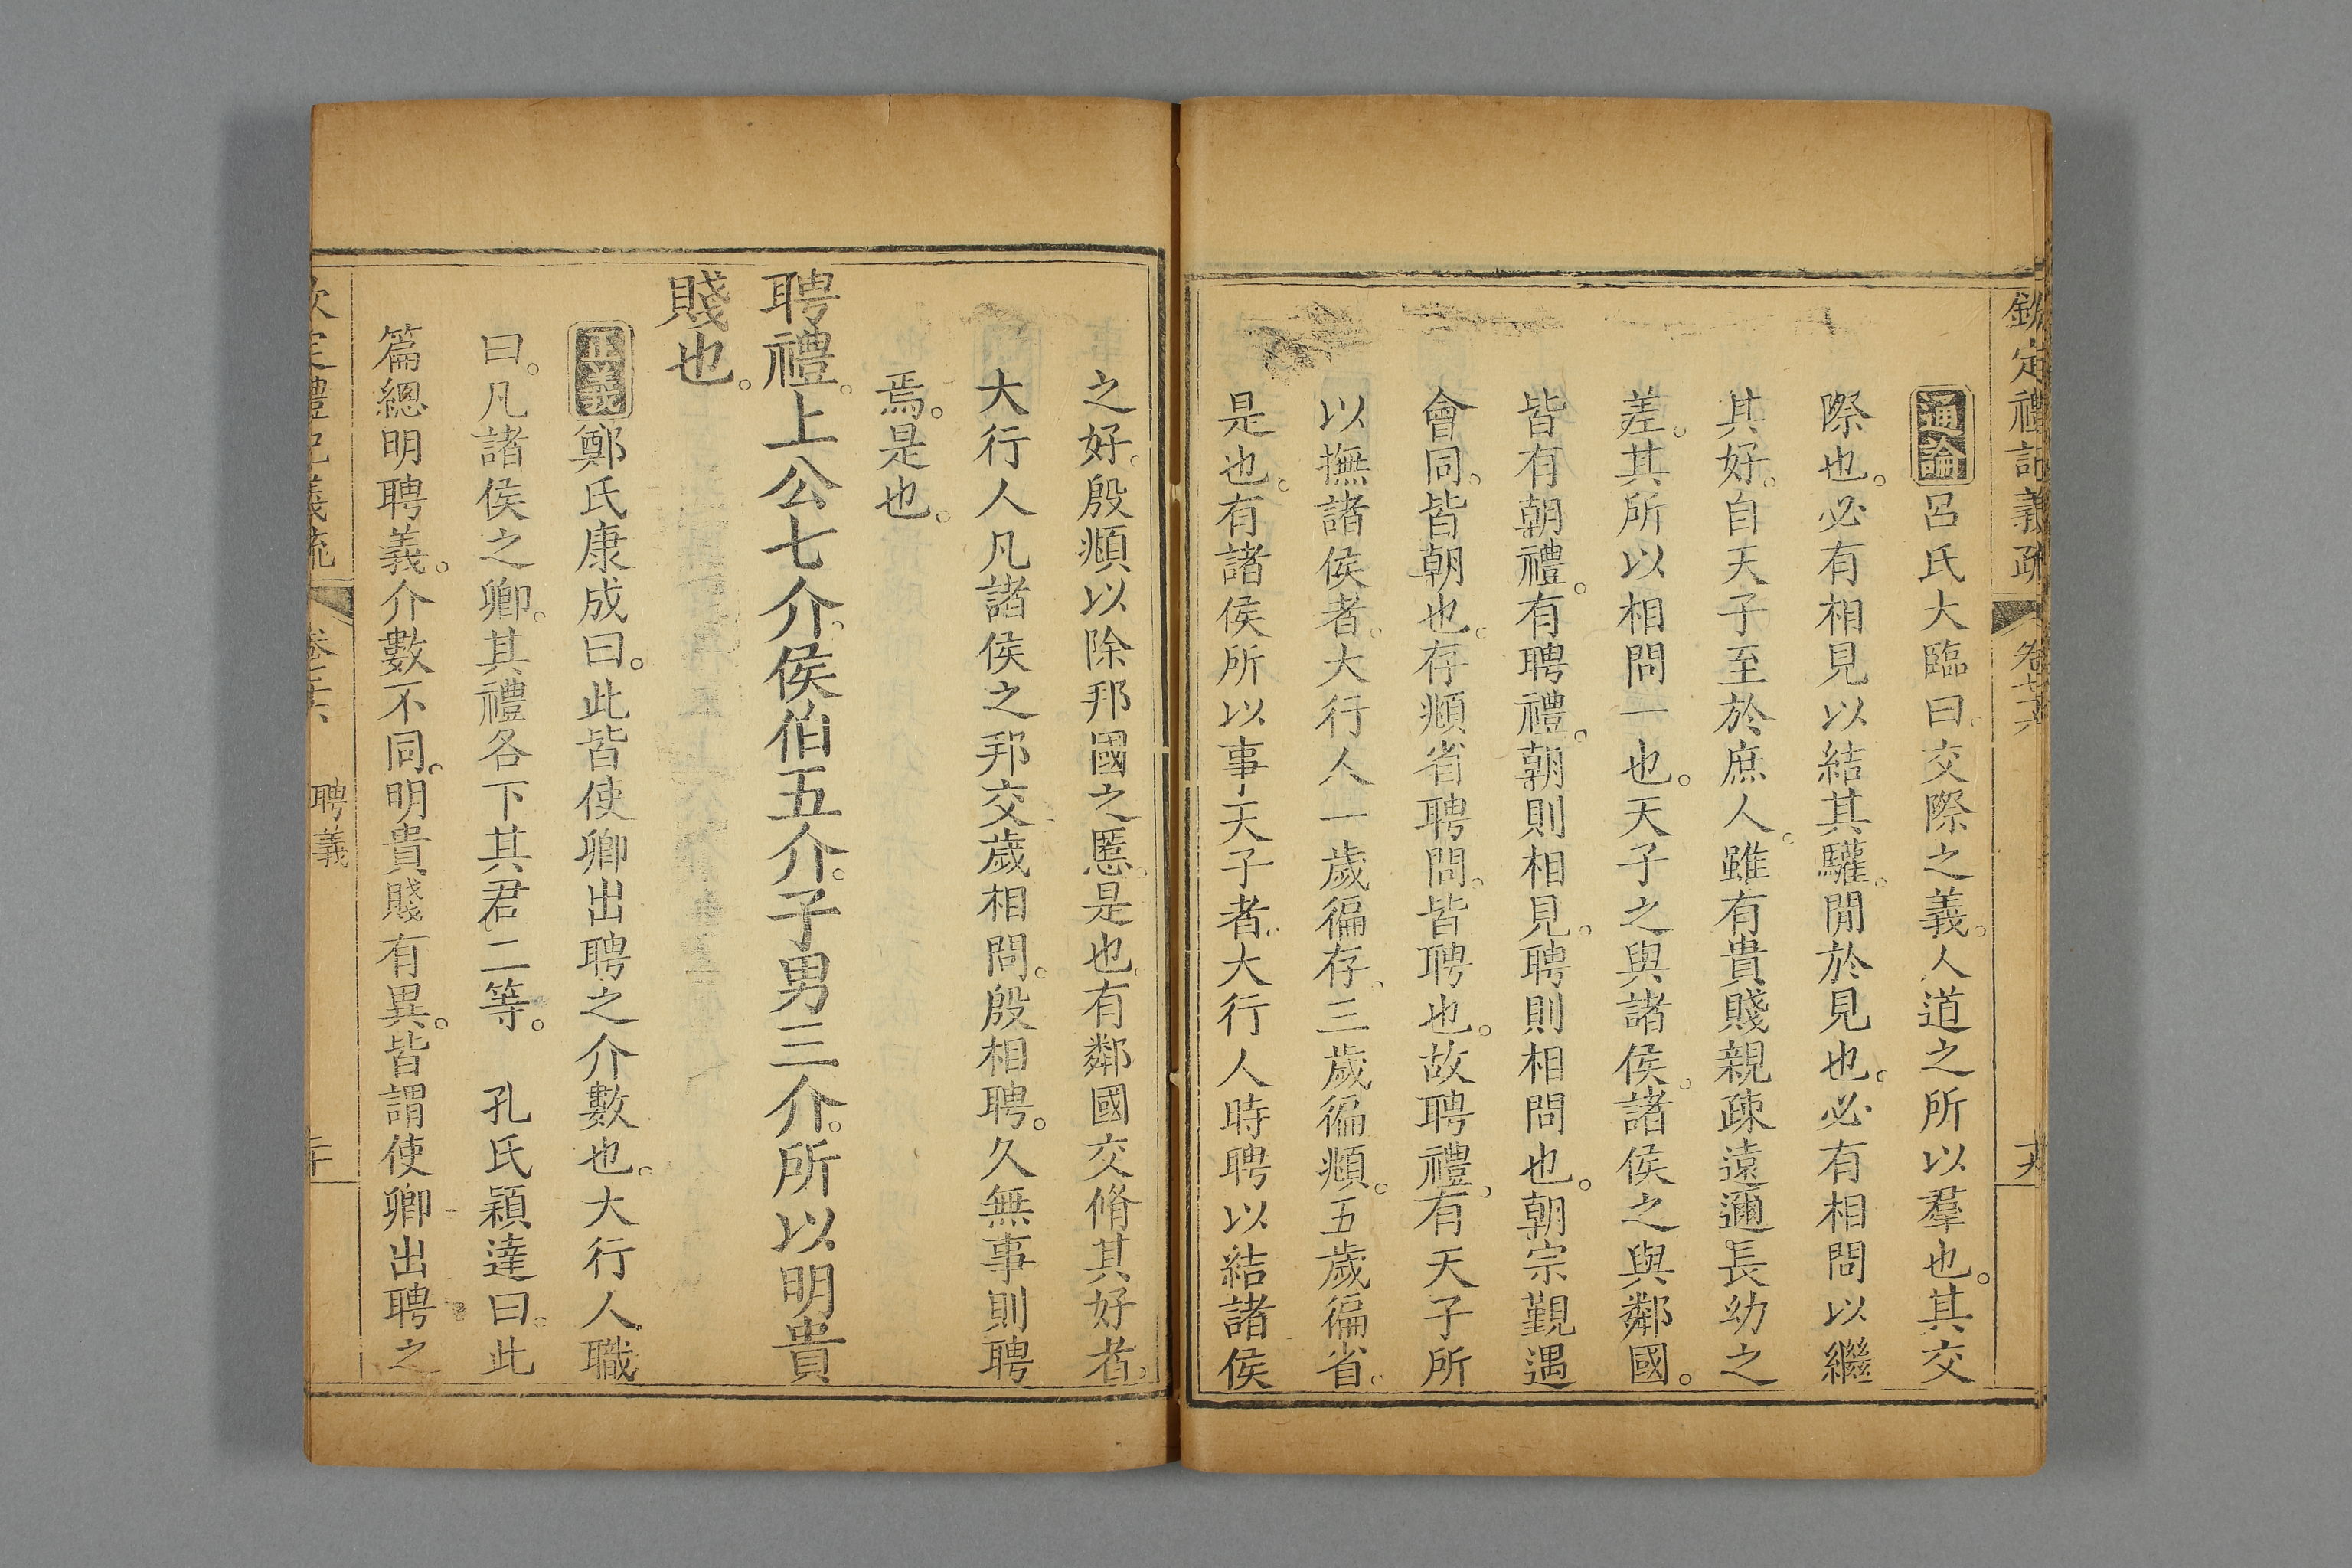 欽定禮記義疏 卷七十六 十九
通論呂氏大臨曰。交際之義。人道之所以羣也。其交
際也。必有相見以結其驩。閒於見也。必有相問以繼
其好。自天子至於庶人。雖有貴賤親疎遠邇長幼之
差。其所以相問一也。天子之與諸侯。諸侯之與鄰國。
皆有朝禮。有聘禮。朝則相見。聘則相問也。朝宗覲遇
會同。皆朝也。存頫省聘問。皆聘也。故聘禮。有天子所
以撫諸侯者。大行人一歲徧存。三歲徧頫。五歲徧省。
是也。有諸侯所以事天子者。大行人時聘以結諸侯
之好。殷頫以除邦國之慝。是也。有鄰國交脩其好者。
大行人凡諸侯之邦交。歲相問。殷相聘。久無事則聘
焉。是也。
聘禮。上公七介。侯伯五介。子男三介。所以明貴
賤也。
正義鄭氏康成曰。此皆使卿出聘之介數也。大行人職
曰。凡諸侯之卿。其禮各下其君二等。 孔氏穎達曰。此
篇總明聘義。介數不同。明貴賤有異。皆謂使卿出聘之
聘義